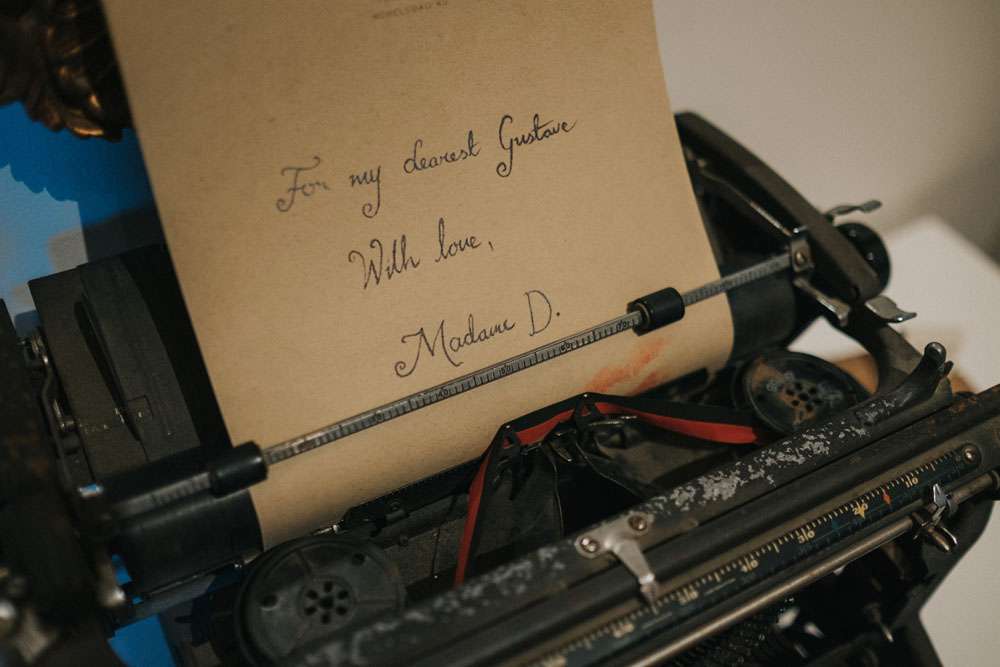 For my dearest Gustave
With love,
Madame D.